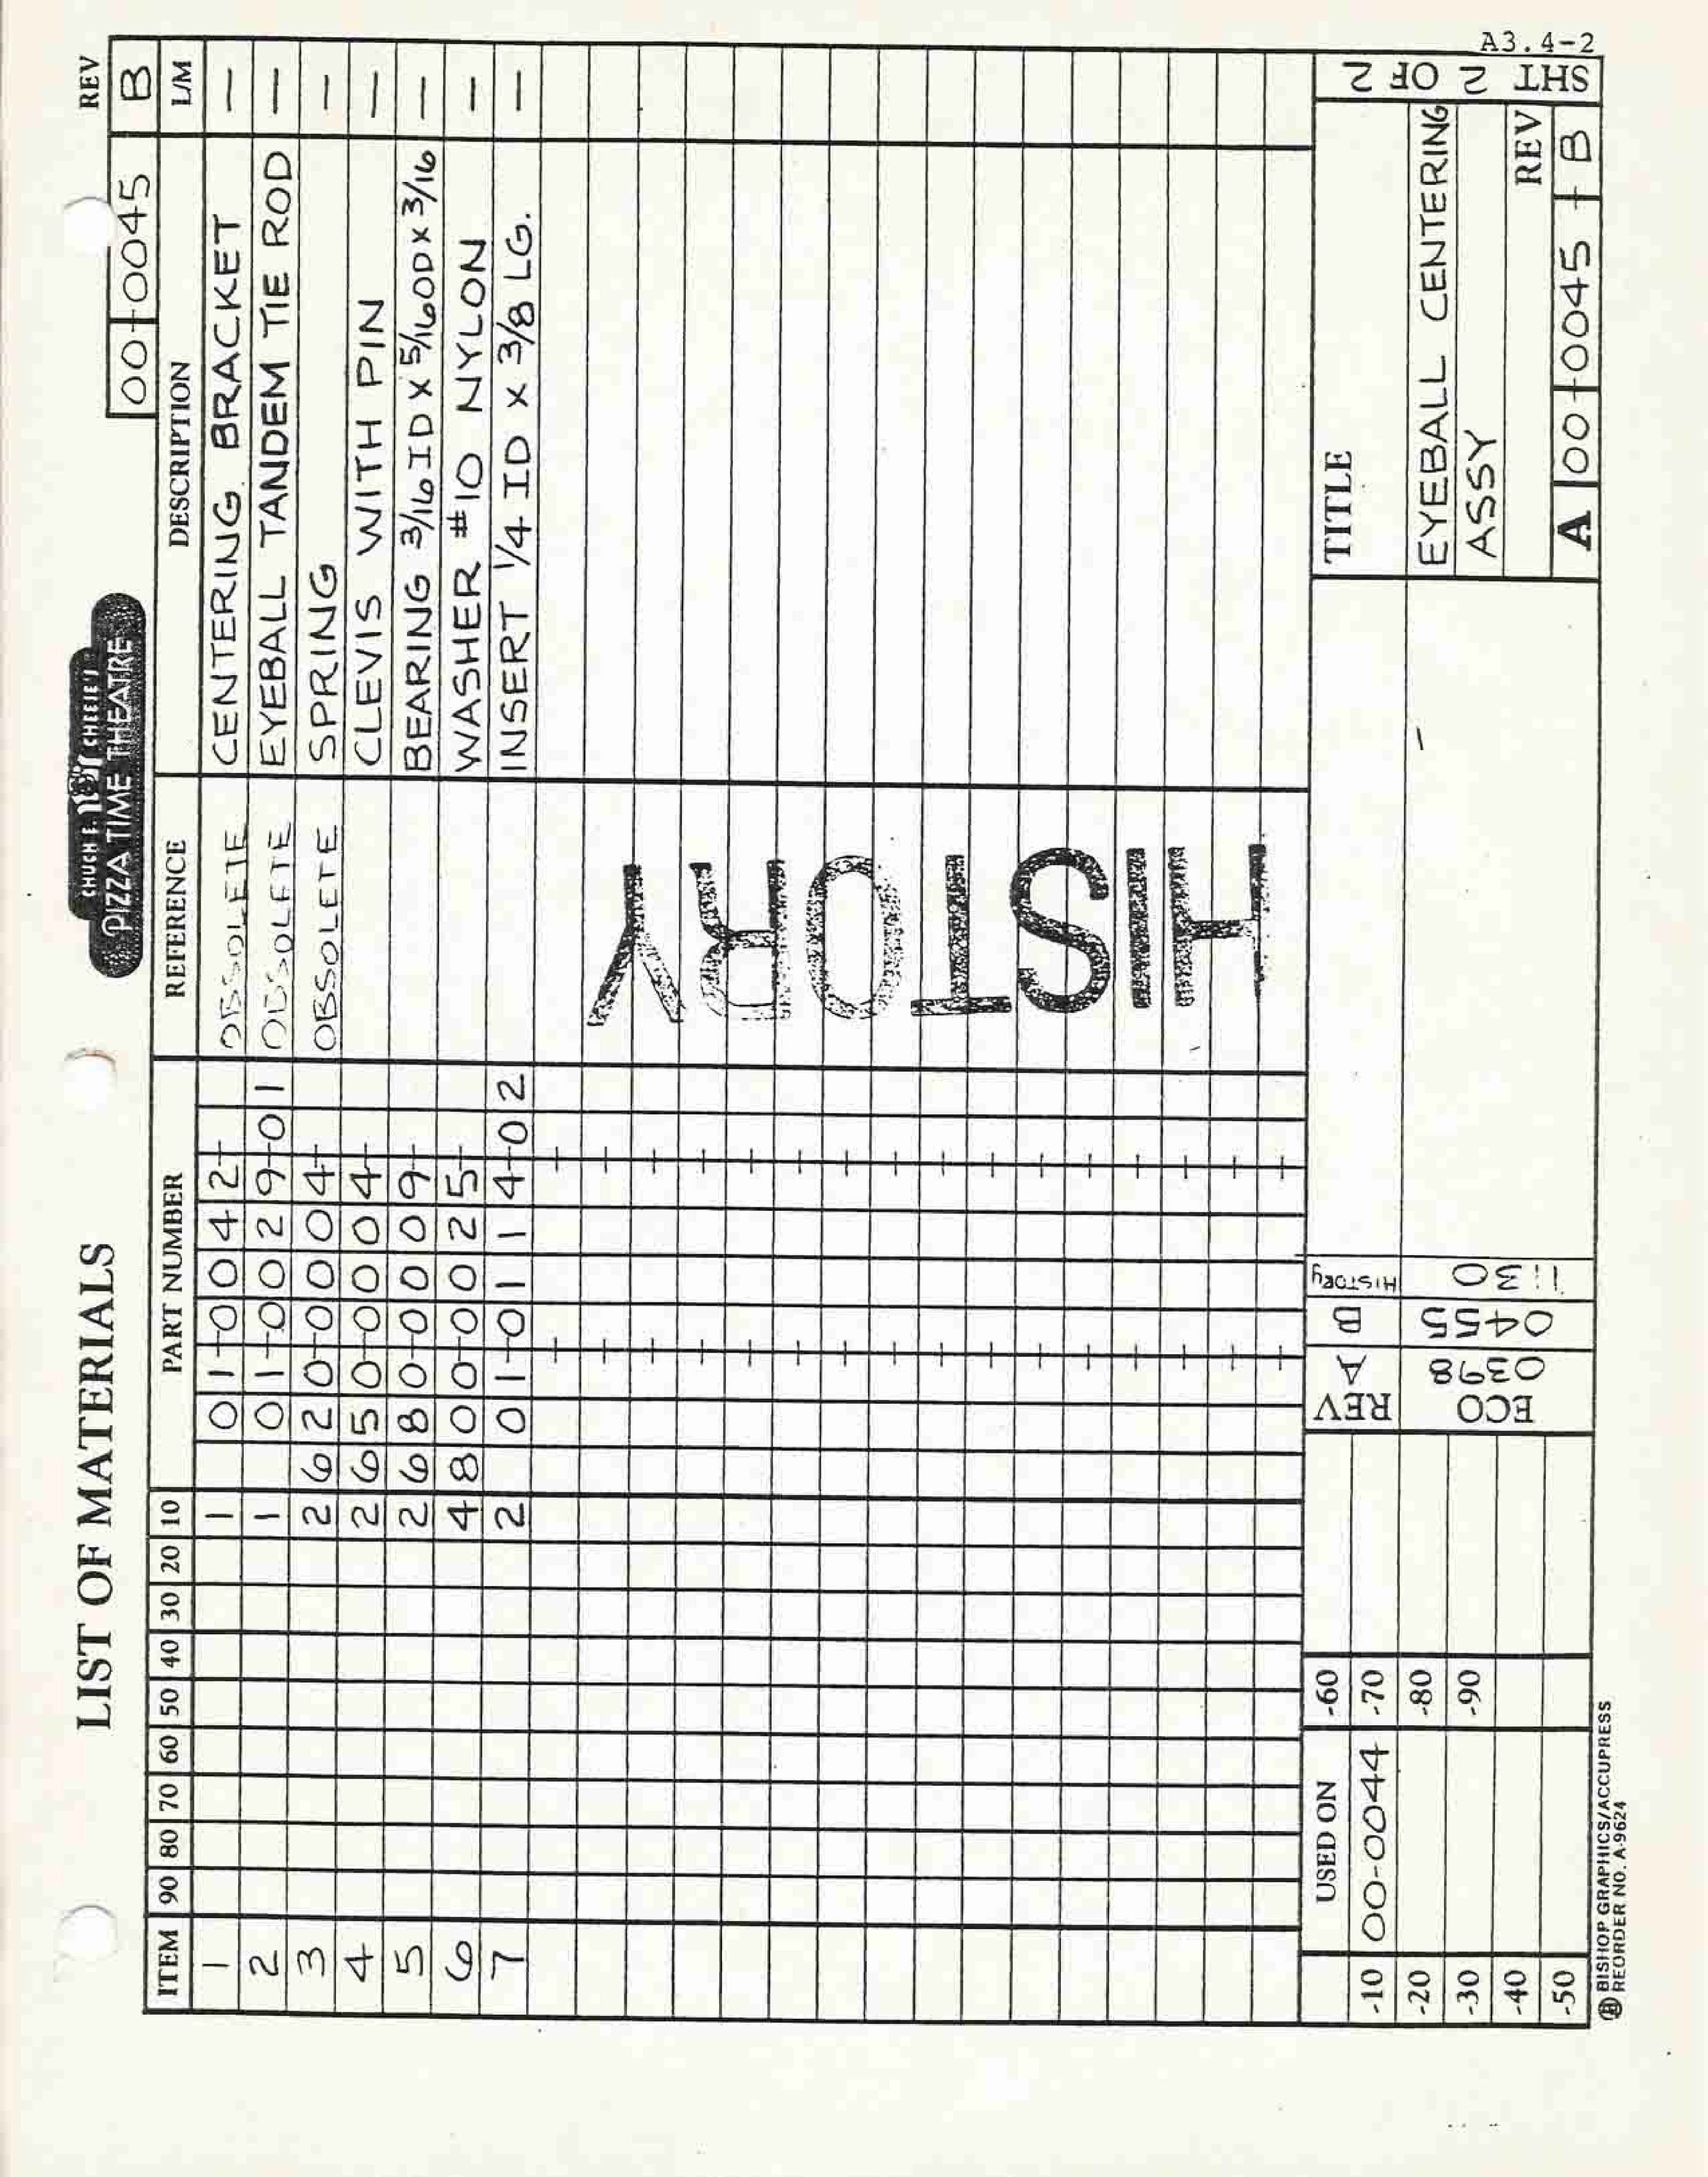 A3.4-2
LIST OF MATERIALS
CHUCK E. CHEESE'S
PIZZA TIME THEATRE
REV
00-0045 B
ITEM 90 80 70 60 50 40 30 20 10 PART NUMBER REFERENCE DESCRIPTION L/M
1 1 01-0042- OBSOLETE CENTERING BRACKET —
2 1 01-0029-01 OBSOLETE EYEBALL TANDEM TIE ROD —
3 2 620-0004- OBSOLETE SPRING —
4 2 650-0004- CLEVIS WITH PIN —
5 2 680-0009- BEARING 3/16 ID x 5/16 OD x 3/16 —
6 4 800-0025- WASHER #10 NYLON —
7 2 01-0114-02 INSERT 1/4 ID x 3/8 LG. —
HISTORY
USED ON
-10 00-0044 -60
-20 -70
-30 -80
-40 -90
-50
REV A B HISTORY
ECO 0398 0455 1130
TITLE
EYEBALL CENTERING
ASSY
REV
A 00-0045 - B
SHT 2 OF 2
BISHOP GRAPHICS/ACCUPRESS
REORDER NO. A-9624